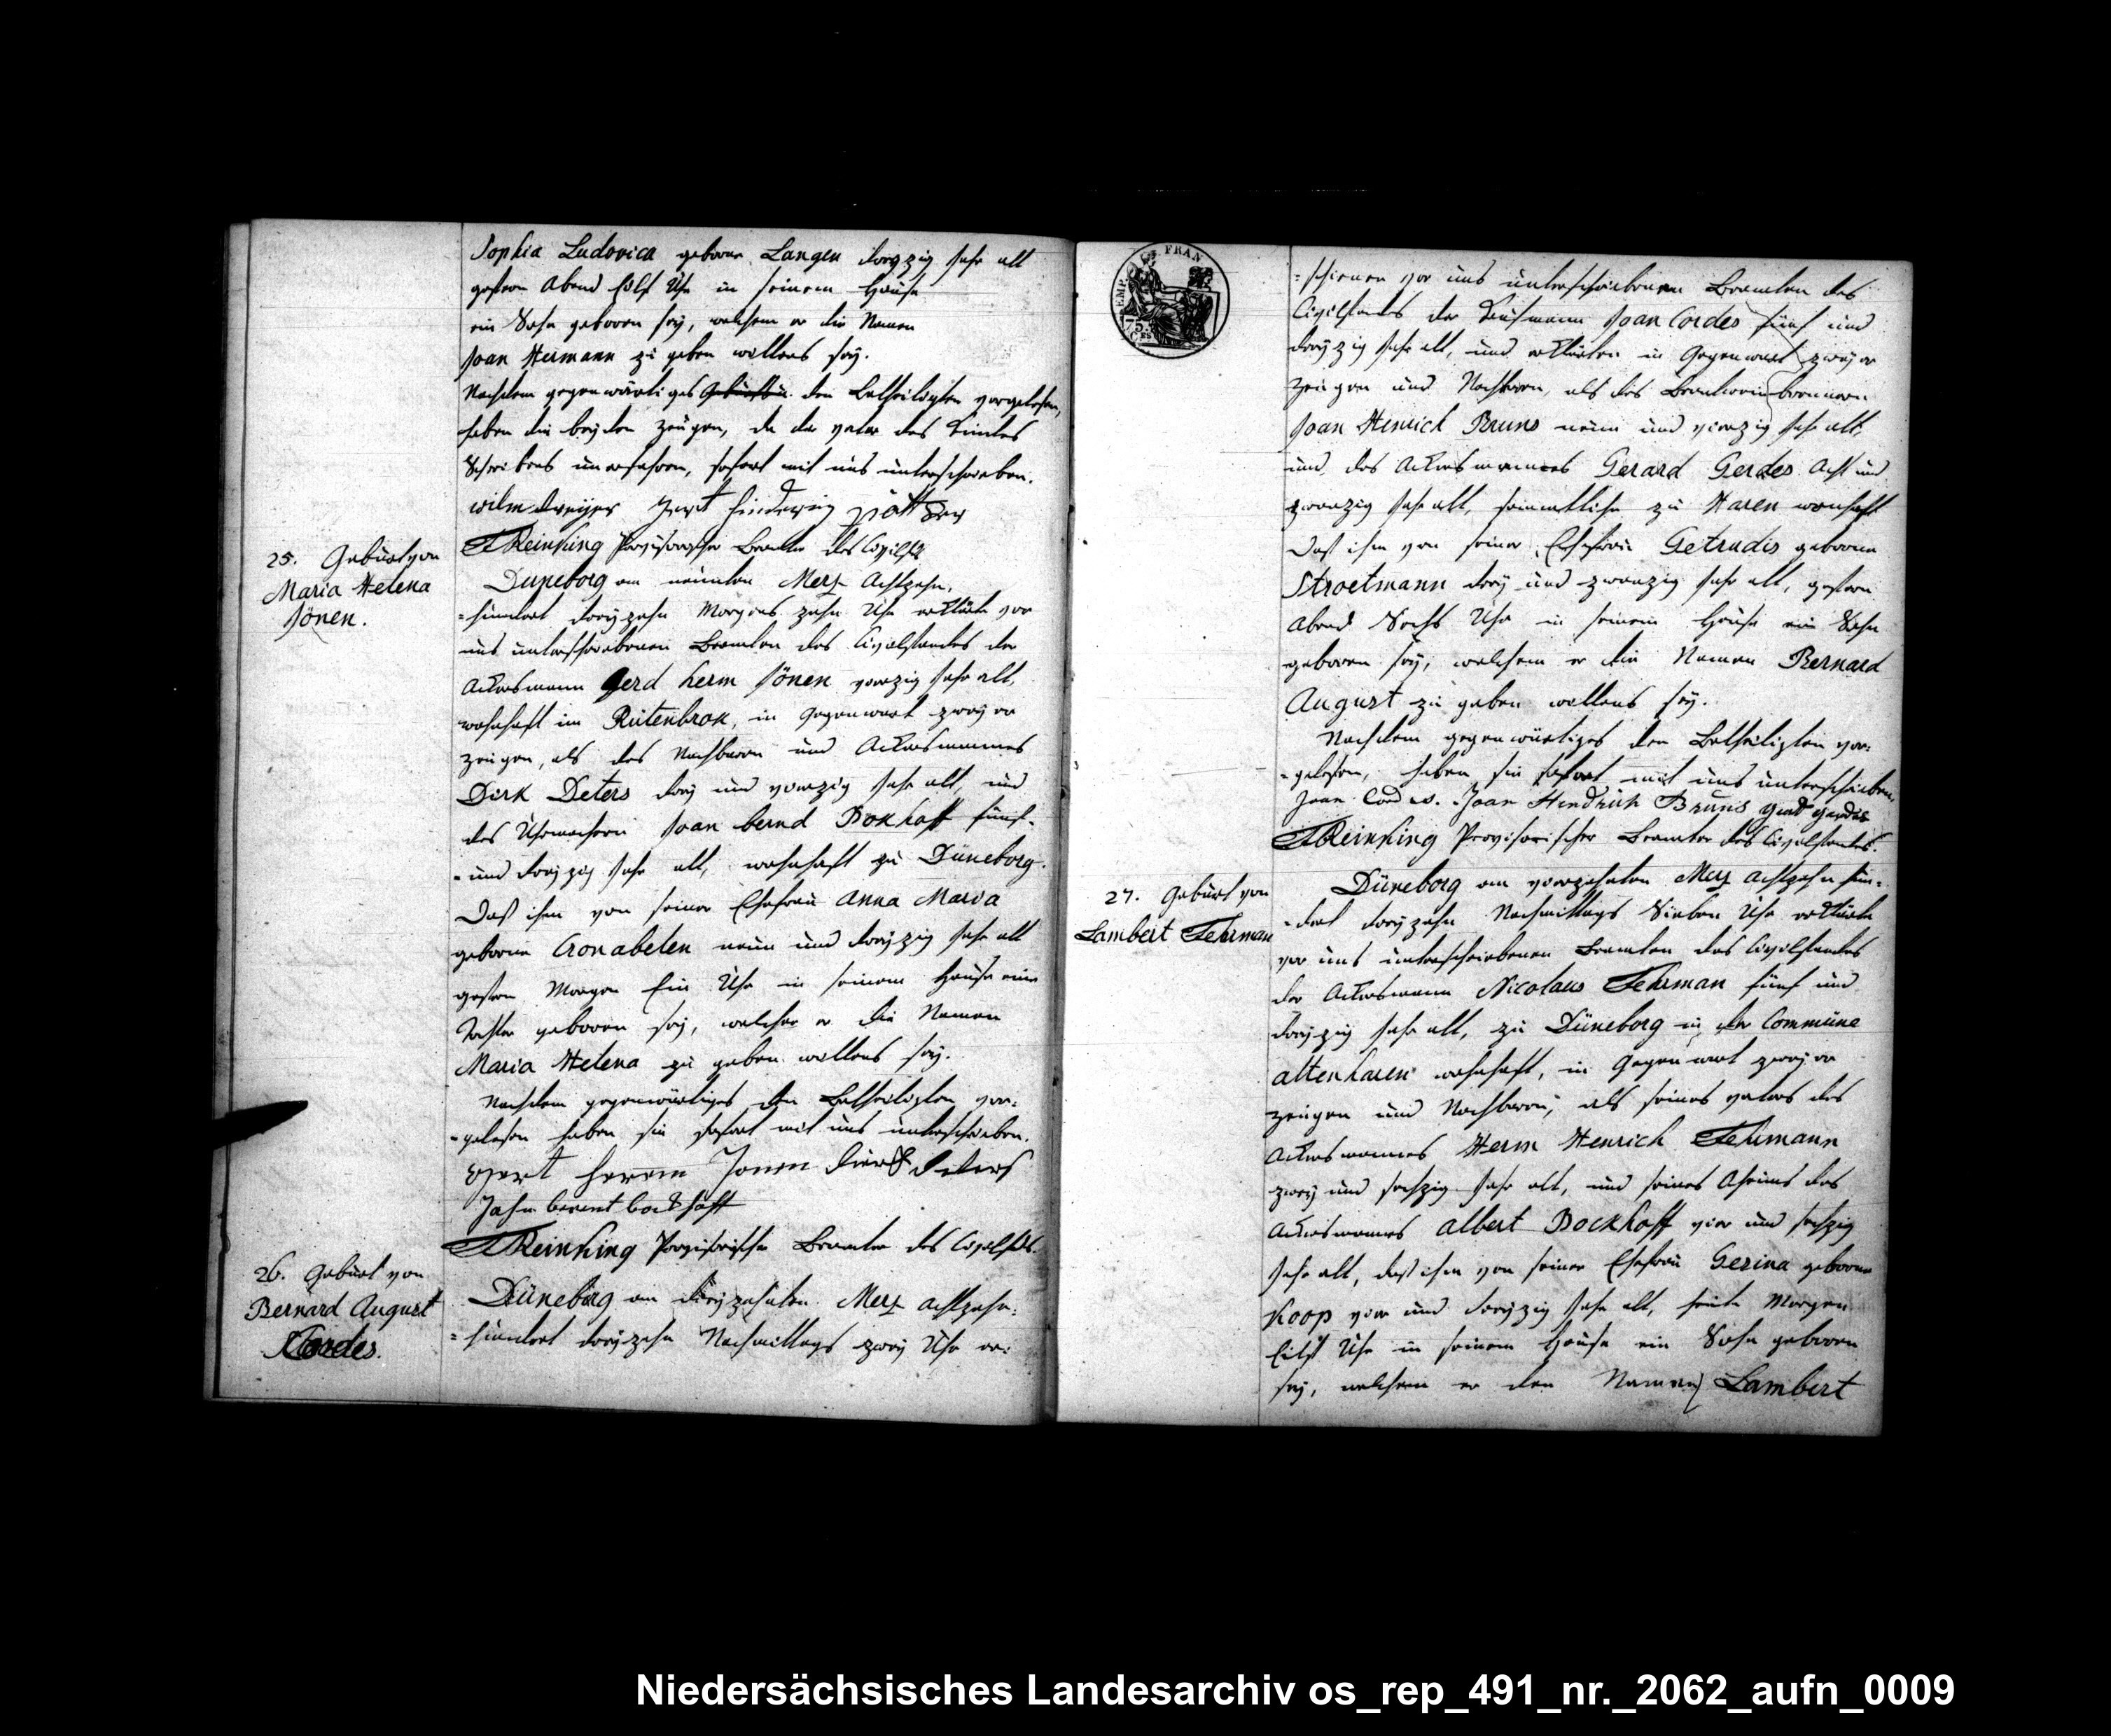 Sophia Ludovica geborne Langen dreyzig Jahr alt
gestern Abend Eilf Uhr in seinem Hause
ein Sohn geboren sey, welchem er die Namen
Joan Hermann zu geben willens sey.
Nachdem gegenwärtiges den Betheiligten vorgelesen,
haben die beyden Zeugen, da der Vater des Kindes
Schreibens unerfahren, sofort mit uns unterschrieben.
wilm dreijer Gert Hinderig pötker
Reinking Provisorischer Beamter des Civilst.
25. Geburt von
Maria Helena
Jönen.
Duneborg am neunten Merz Achtzehn,
=hundert dreyzehn Morgens zehn Uhr erklärte vor
uns unterschriebenen Beamten des Civilstandes der
Ackersmann Gerd Herm Jönen vierzig Jahr alt,
wohnhaft im Rütenbrok, in Gegenwart zweyer
Zeugen, als des Nachbaren und Ackersmannes
Dirk Deters drey und vierzig Jahr alt, und
des Uhrmachern Joan bernd Bokhoff fünf-
-und dreyzig Jahr alt, wohnhaft zu Düneborg.
Daß ihm von seiner Ehefrau Anna Maria
geborne Cronabelen neun und dreyzig Jahr alt
gestern Morgen Ein Uhr in seinem Hause eine
Tochter geboren sey, welcher er die Namen
Maria Helena zu geben willens sey.
Nachdem gegenwärtiges den Betheiligten vor=
-gelesen haben sie sofort mit uns unterschrieben.
Gert Herrm Jonen Dierk Deters
Jahn berent bockhoff
Reinking Provisorischer Beamter des Civilstds.
26. Geburt von
Bernard August
Cordes.
Düneborg am dreyzehnten Merz achtzehn=
=hundert dreyzehn Nachmittags zwey Uhr er=
EMP. FRAN
75
=schienen vor uns unterschriebenen Beamten des
Civilstandes der Kaufmann Joan Cordes fünf und
dreyzig Jahr alt, und erklärten in Gegenwart zweyer
Zeugen und Nachbaren, als des Brantwein brenners
Joan Henrich Bruns neun und vierzig Jahr alt,
und des Ackersmannes Gerard Gerdes Acht und
zwanzig Jahr alt, sämmtliche zu Haren wonhaft
Daß ihm von seiner Ehefrau Getrudis geborne
Stroetmann drey und zwanzig Jahr alt, gestern
Abend Sechs Uhr in seinem Hause ein Sohn
geboren sey, welchem er die Namen Bernard
August zu geben willens sey.
Nachdem gegenwärtiges den Betheiligten vor=
-gelesen, haben sie sofort mit uns unterschrieben.
Joan Cordes. Joan Hendrich Bruns Gerd Gerdes
Reinking Provisorischer Beamter des Civilstandes.
27. Geburt von
Lambert Fehrman
Düneborg am vierzehnten Merz achtzehn hun=
-dert dreyzehn Nachmittags Sieben Uhr erklärte
vor uns unterschriebenen Beamten des Civilstandes
der Ackersmann Nicolaus Fehrman fünf und
dreyzig Jahr alt, zu Düneborg in der Commüne
altenharen wohnhaft, in Gegenwart zweyer
Zeugen und Nachbaren, als seines Vaters des
Ackersmannes Herm Henrich Fehrmann
zwey und sechzig Jahr alt, und seines Oheims des
Ackersmannes Albert Bockhoff vier und sechzig
Jahr alt, daß ihm von seiner Ehefrau Gesina geborne
Koop vier und dreyzig Jahr alt, heute Morgen
Eilf Uhr in seinem Hause ein Sohn geboren
sey, welchem er den Namen Lambert
Niedersächsisches Landesarchiv os_rep_491_nr._2062_aufn_0009